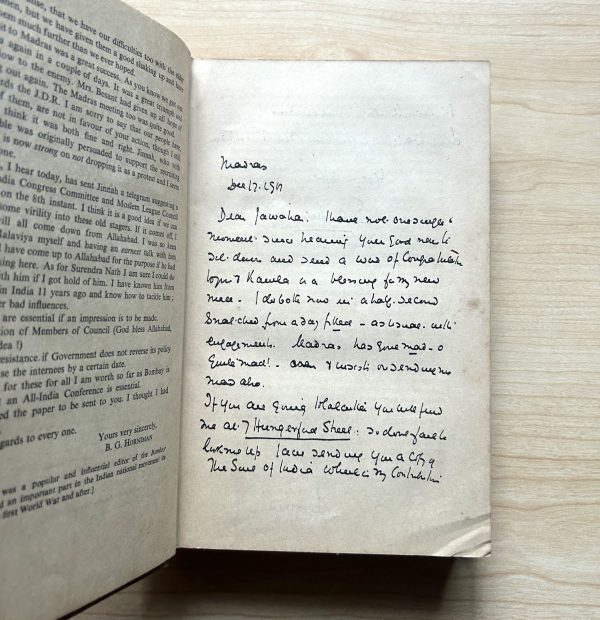 that we have our difficulties too with the
but we have given them a good shaking up and have
much further than we ever hoped.
it to Madras was a great success. As you know we got
again in a couple of days. It was a great triumph and
low to the enemy. Mrs. Besant had given up all hope of
out again. The Madras meeting too was quite good.
the J.D.R. I am sorry to say that our people here,
of them, are not in favour of your action, though I
think it was both fine and right. Jinnah, who with
was originally persuaded to support the recruiting
is now strong on not dropping it as a protest and I seem
one.
I hear today, has sent Jinnah a telegram suggesting a
India Congress Committee and Moslem League Council
on the 8th instant. I think it is a good idea if we can
some virility into these old stagers. If it comes off, I
will all come down from Allahabad. I was so
Malaviya myself and having an earnest talk with him
I have come up to Allahabad for the purpose if he had
ing here. As for Surendra Nath I am sure I could do
with him if I got hold of him. I have known him from
in India 11 years ago and know how to tackle him ;
er bad influences.
are essential if an impression is to be made.
sion of Members of Council (God bless Allahabad,
dea !)
resistance.if Government does not reverse its policy
se the internees by a certain date.
for these for all I am worth so far as Bombay is
an All-India Conference is essential.
d the paper to be sent to you. I thought I had
gards to every one.
Yours very sincerely,
B. G. HORNIMAN
was a popular and influential editor of the Bombay
an important part in the Indian national movement in
first World War and after.]
Madras
Dec 17. 1917
Dear Jawahar. I have not one single
moment since hearing your good news to
sit down and send a word of Congratulation
to you & Kamla and a blessing for my new
niece - I do both now in a half-second
snatched from a day filled - as usual with
engagements. Madras has gone mad - o
quite mad! - and insists on sending me
mad also.
If you are going to Calcutta you will find
me at 7 Hungerford Street: so don't fail to
look me up I am sending you a Copy of
The Soul of India which is my Contribution